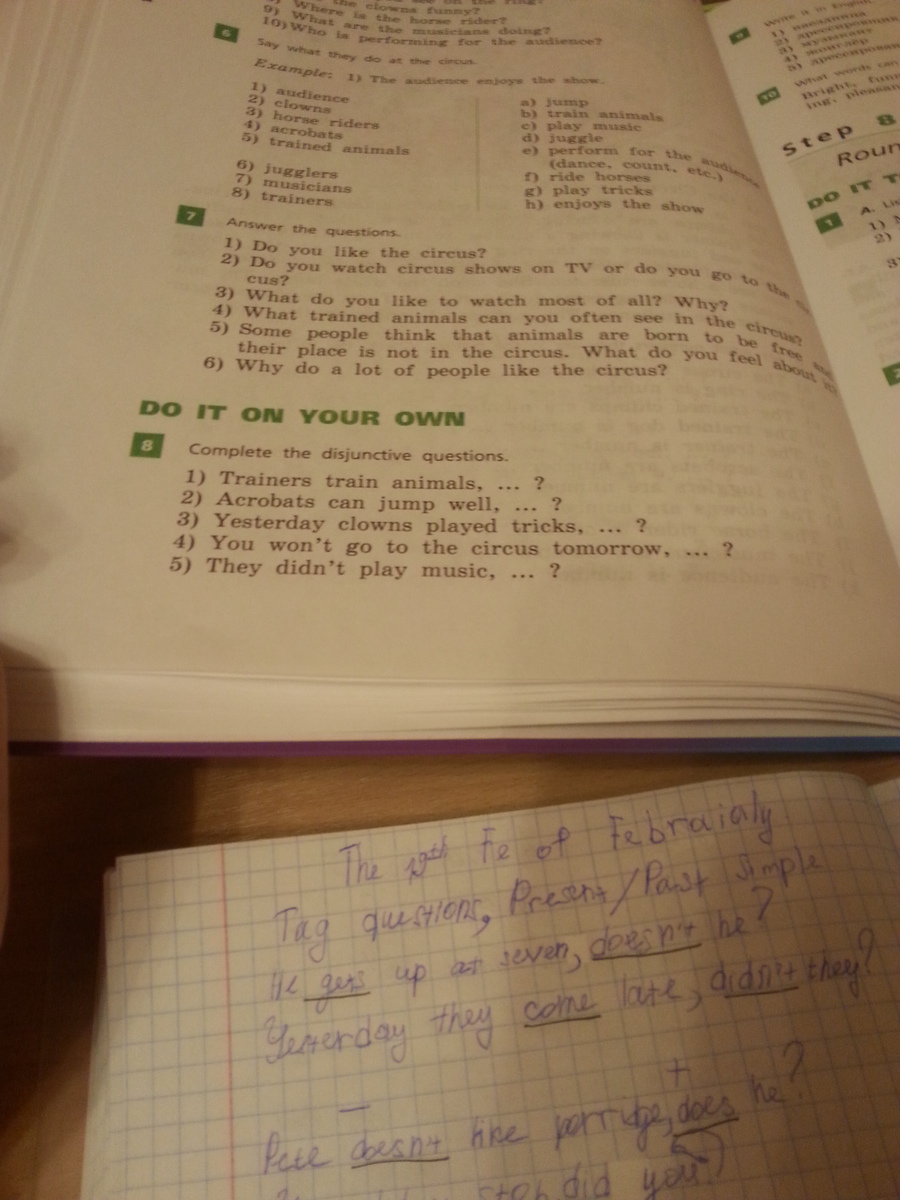 the clowns funny?
9) Where is the horse rider?
10) What are the musicians doing?
Who is performing for the audience?
6 Say what they do at the circus.
Example: 1) The audience enjoys the show.
1) audience
2) clowns
3) horse riders
4) acrobats
5) trained animals
6) jugglers
7) musicians
8) trainers
a) jump
b) train animals
c) play music
d) juggle
e) perform for the audience
(dance, count, etc.)
f) ride horses
g) play tricks
h) enjoys the show
7 Answer the questions.
1) Do you like the circus?
2) Do you watch circus shows on TV or do you go to the
cus?
3) What do you like to watch most of all? Why?
4) What trained animals can you often see in the circus?
5) Some people think that animals are born to be free
their place is not in the circus. What do you feel about
6) Why do a lot of people like the circus?
DO IT ON YOUR OWN
8 Complete the disjunctive questions.
1) Trainers train animals, ... ?
2) Acrobats can jump well, ... ?
3) Yesterday clowns played tricks, ... ?
4) You won't go to the circus tomorrow, ... ?
5) They didn't play music, ... ?
9 Write it in
1)
2)
3)
4)
5)
10 What words can
Bright, fun
ing, pleasan
Step 8
Roun
DO IT T
1 A. Li
1)
2)
3)
2
The 19th Fe of Febraialy
Tag questions, Present/Past Simple
He gets up at seven, doesn't he?
Yesterday they come late, didn't they?
— +
Pete doesn't like porridge, does he?
stop did you?